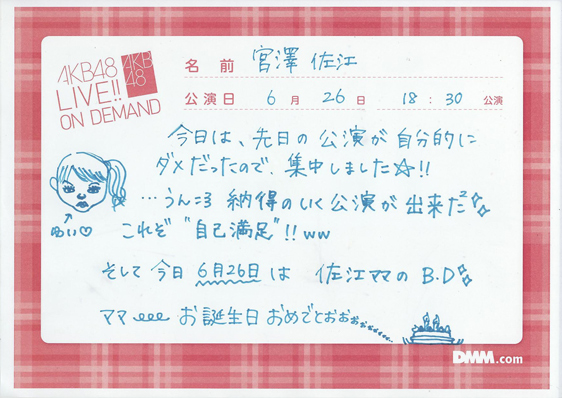 AKB48
LIVE!!
ON DEMAND
AKB
48
名前 宮澤 佐江
公演日 6月 26日 18:30 公演
今日は、先日の公演が自分的に
ダメだったので、集中しました☆!!
…うん=3 納得のいく公演が出来た²
これぞ "自己満足"!!ww
ゆい♡
そして今日 6月26日は 佐江ママのB.D
ママ お誕生日おめでとおぉぉ
DMM.com